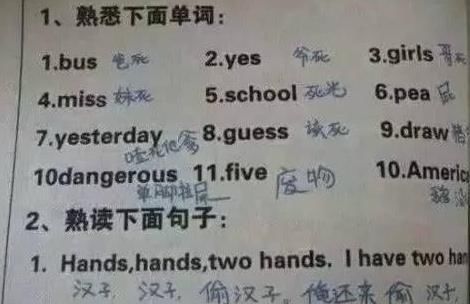 1、熟悉下面单词：
1.bus 爸死 2.yes 爷死 3.girls 哥死
4.miss 妹死 5.school 死光 6.pea 屁
7.yesterday 8.guess 该死 9.draw
10dangerous 单脚拉屎 11.five 废物 10.Americ
2、熟读下面句子：
1. Hands,hands,two hands. I have two han
汉子，汉子，偷汉子。俺还来偷汉